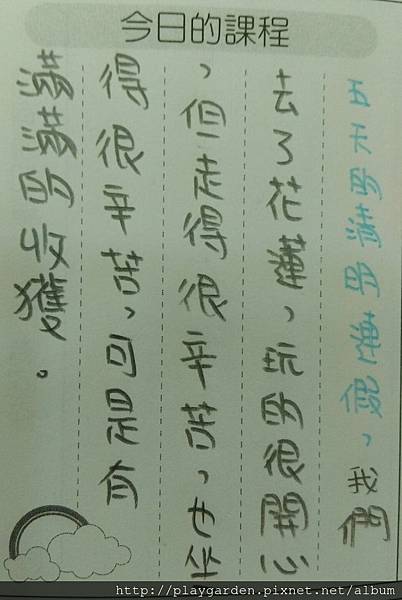 今日的課程
五天的清明連假，我們
去了花蓮，玩的很開心
，但走得很辛苦，也坐
得很辛苦，可是有
滿滿的收獲。
http://playgarden.pixnet.net/album